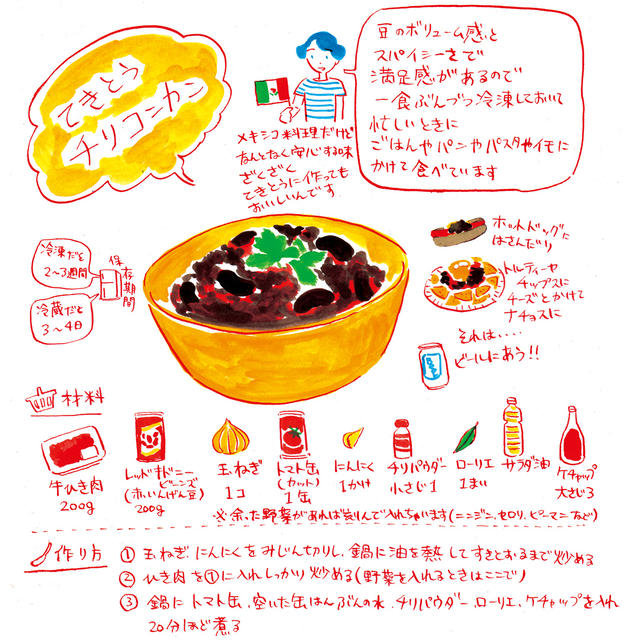 てきとう
チリコンカン
豆のボリューム感と
スパイシーさで
満足感があるので
一食ぶんづつ冷凍しておいて
忙しいときに
ごはんやパンやパスタやイモに
かけて食べています
メキシコ料理だけど
なんとなく安心する味
ざくざく
てきとうに作っても
おいしいんです
冷凍だと
2〜3週間
冷蔵だと
3〜4日
保存期間
ホットドッグに
はさんだり
トルティーヤ
チップスに
チーズとかけて
ナチョスに
それは・・・・
ビールにあう!!
材料
牛ひき肉
200g
レッドキドニー
ビーンズ
(赤いんげん豆)
200g
玉ねぎ
1コ
トマト缶
(カット)
1缶
にんにく
1かけ
チリパウダー
小さじ1
ローリエ
1まい
サラダ油
ケチャップ
大さじ3
※余った野菜があれば刻んで入れちゃいます(ニンジン、セロリ、ピーマンなど)
作り方
① 玉ねぎ、にんにくをみじん切りし、鍋に油を熱してすきとおるまで炒める
② ひき肉を①に入れしっかり炒める(野菜を入れるときはここで)
③ 鍋にトマト缶、空いた缶はんぶんの水、チリパウダー、ローリエ、ケチャップを入れ
20分ほど煮る